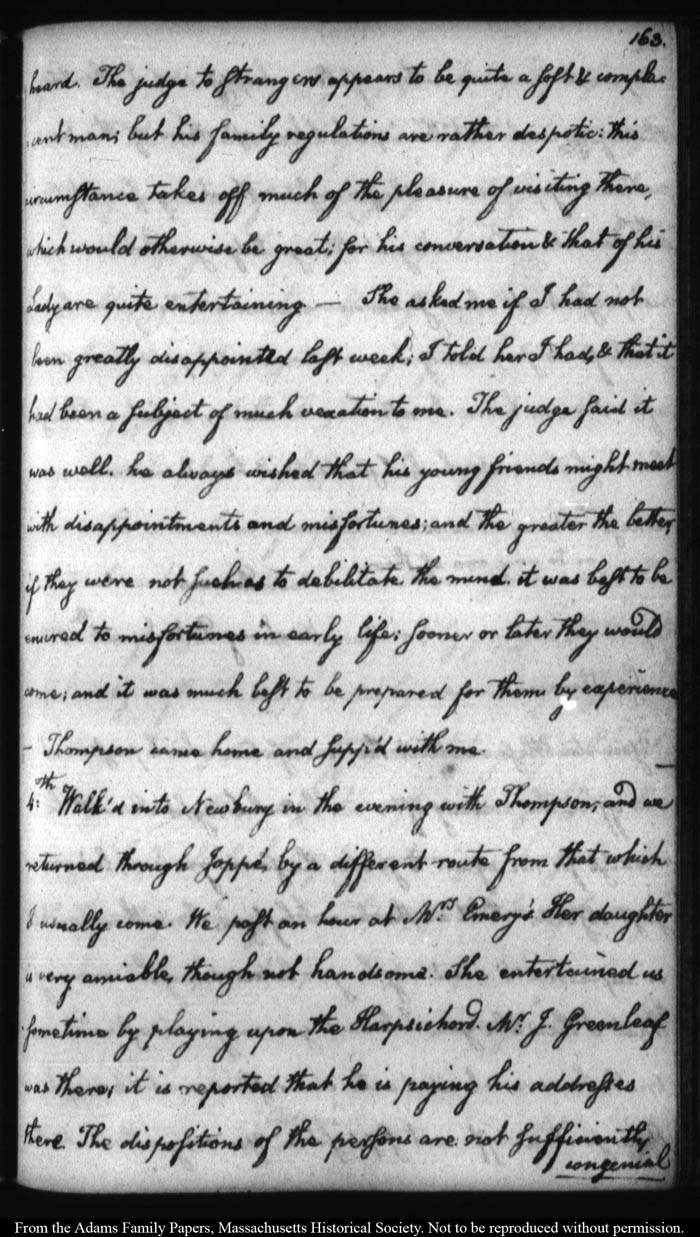 163.
heard. The judge to strangers appears to be quite a soft & compla-
cent man; but his family regulations are rather despotic: this
circumstance takes off much of the pleasure of visiting there,
which would otherwise be great; for his conversation & that of his
Lady are quite entertaining — She asked me if I had not
been greatly disappointed last week; I told her I had, & that it
had been a subject of much vexation to me. The judge said it
was well. he always wished that his young friends might meet
with disappointments and misfortunes; and the greater the better,
if they were not such as to debilitate the mind. it was best to be
enured to misfortunes in early life: sooner or later they would
come; and it was much best to be prepared for them by experience
– Thompson came home and supp'd with me.
4:th Walk'd into Newbury in the evening with Thompson, and we
returned through Joppé, by a different route from that which
I usually come. We past an hour at Mrs Emery's Her daughter
is very amiable, though not handsome. She entertained us
sometime by playing upon the Harpsichord. Mr. J. Greenleaf
was there; it is reported that he is paying his addresses
there. The dispositions of the persons are not sufficiently
congenial
From the Adams Family Papers, Massachusetts Historical Society. Not to be reproduced without permission.